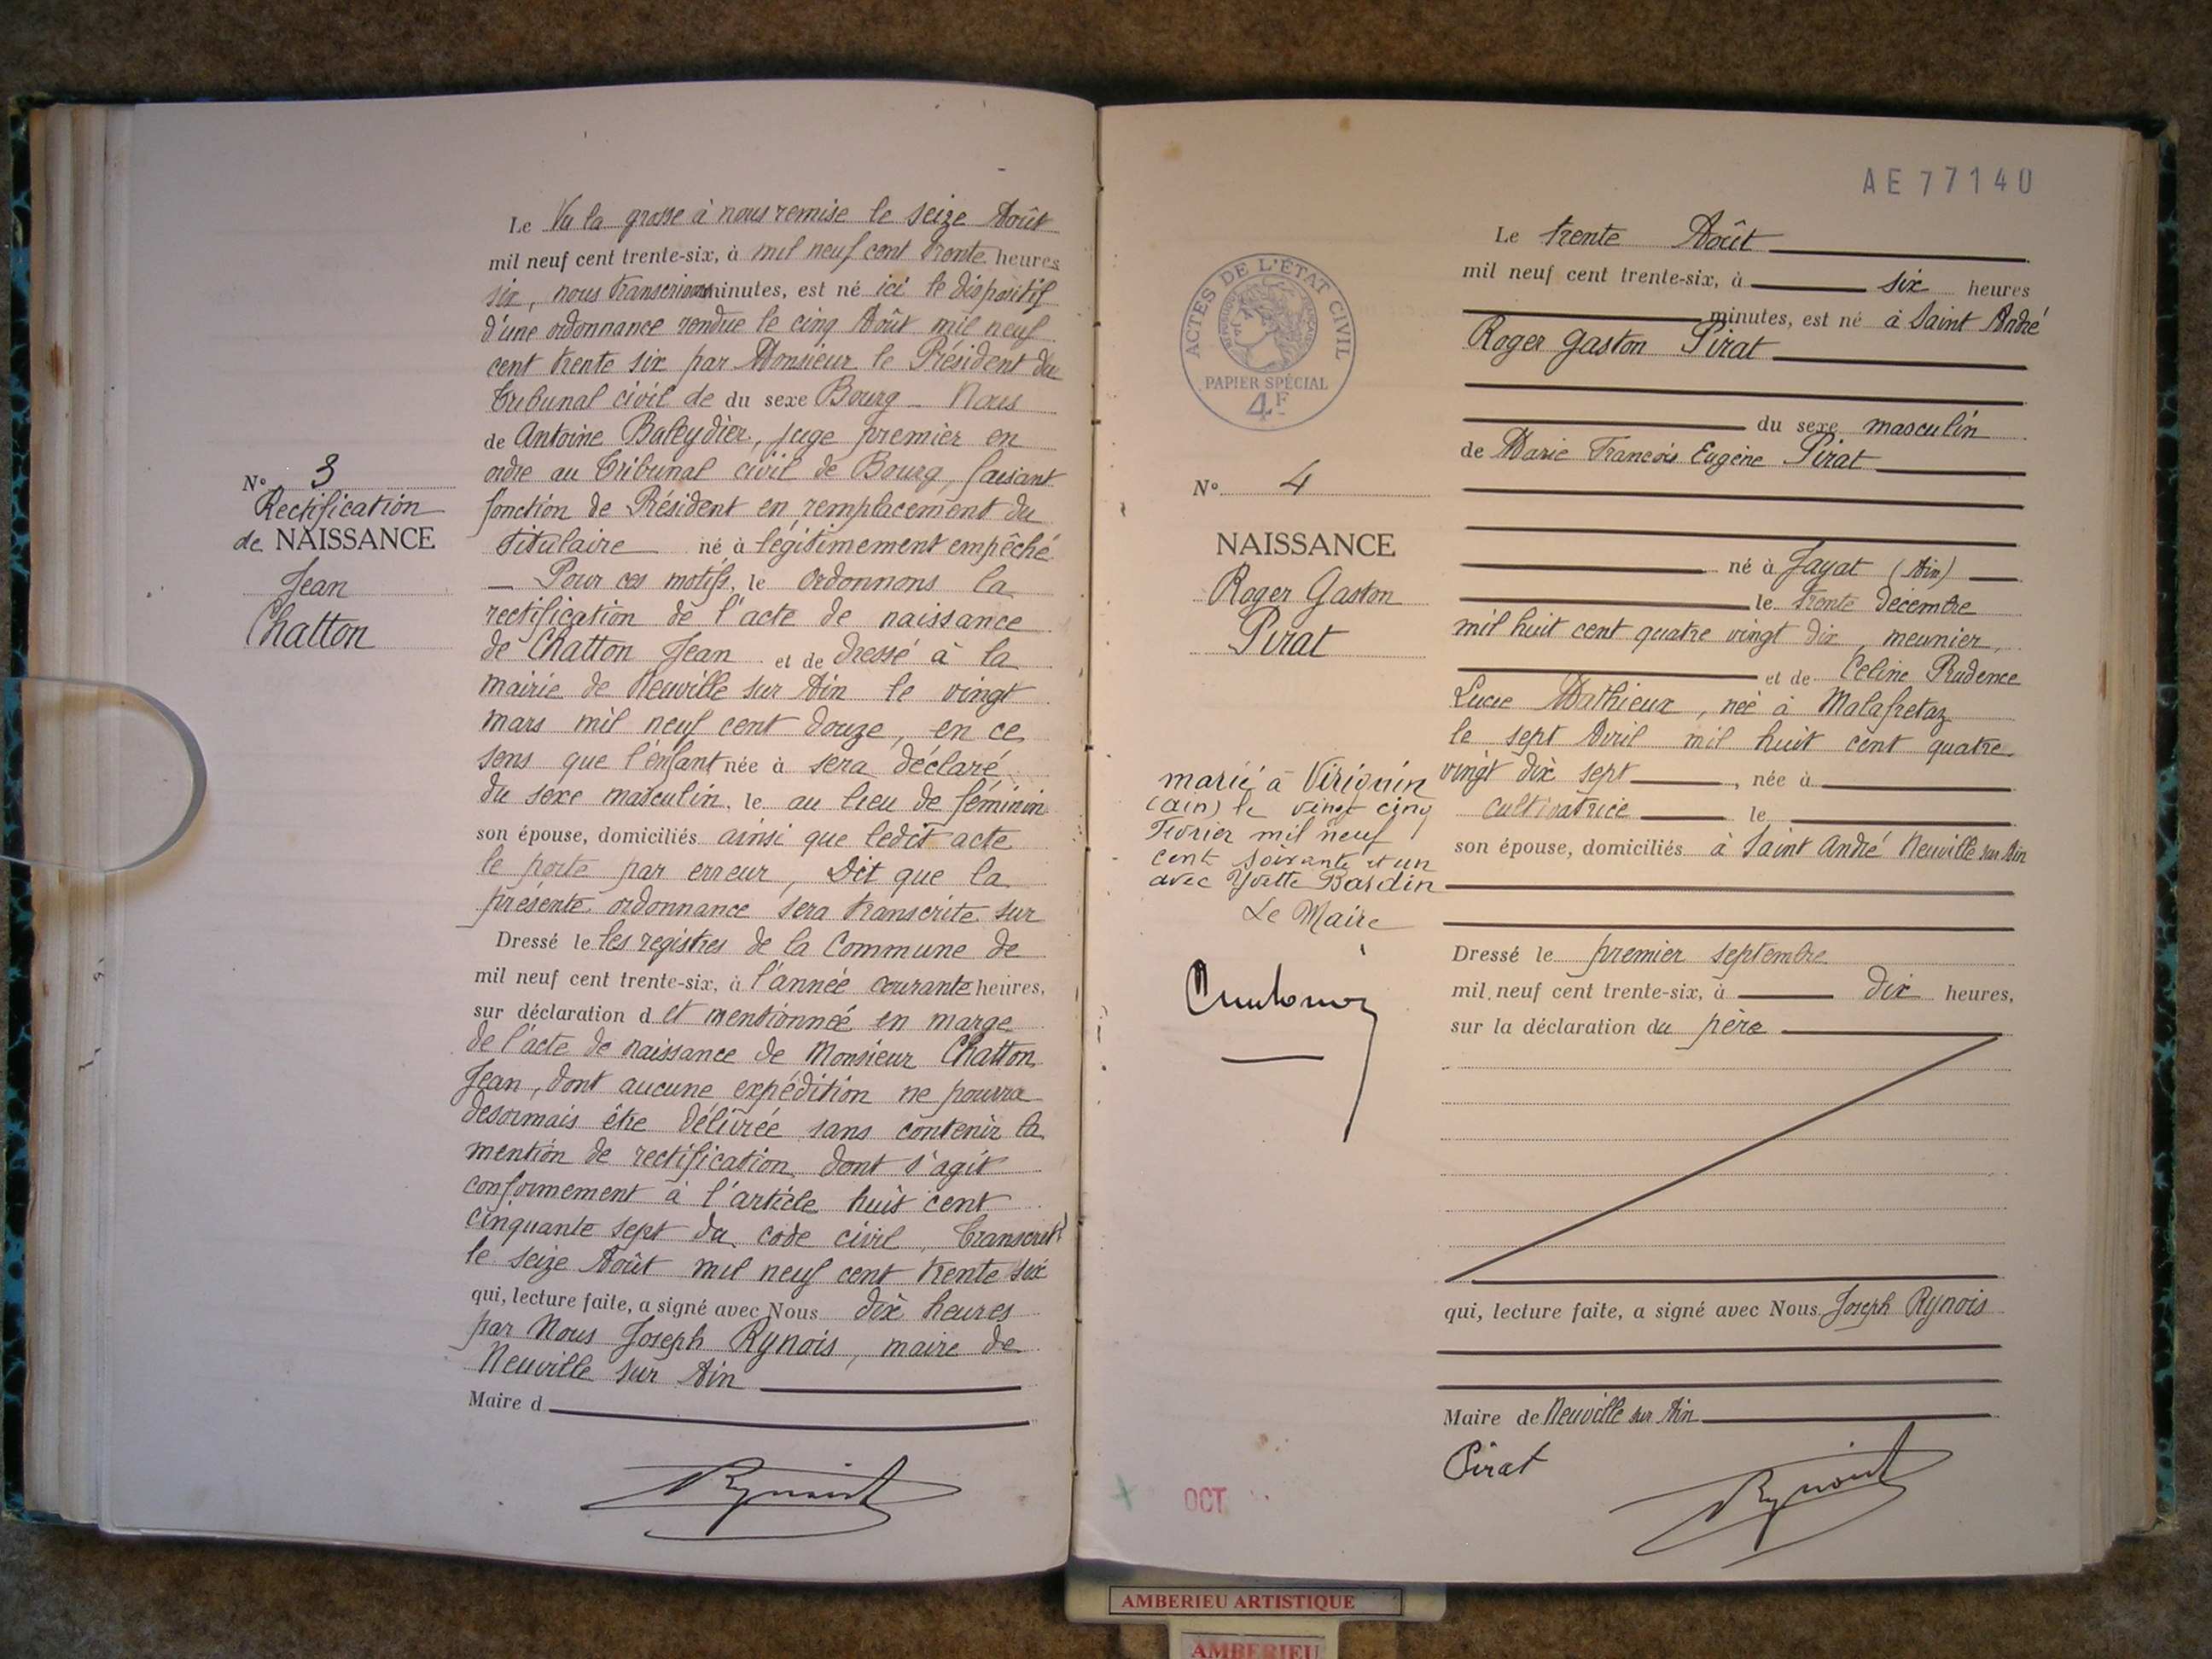 Le Vu la grosse à nous remise le seize Août
mil neuf cent trente-six, à mil neuf cent trente heures
six, nous transcrivons minutes, est né ici le dispositif
d'une ordonnance rendue le cinq Août mil neuf
cent trente six par Monsieur le Président du
Tribunal civil de du sexe Bourg - Nous
de Antoine Baleydier, juge premier en
ordre au Tribunal civil de Bourg, faisant
fonction de Président en remplacement du
titulaire né à légitimement empêché
— Pour ces motifs, le ordonnons la
rectification de l'acte de naissance
de Chatton Jean et de dressé à la
mairie de Neuville sur Ain le vingt
mars mil neuf cent douze, en ce
sens que l'enfant née à sera déclaré
du sexe masculin, le au lieu de féminin
son épouse, domiciliés ainsi que ledit acte
le porte par erreur, Dit que la
présente ordonnance sera transcrite sur
Dressé le les registres de la Commune de
mil neuf cent trente-six, à l'année courante heures,
sur déclaration d et mentionneé en marge
de l'acte de naissance de Monsieur Chatton
Jean, dont aucune expédition ne pourra
desormais être délivrée sans contenir la
mention de rectification dont s'agit
conformement à l'article huit cent
cinquante sept du code civil, Transcrit
le seize Août mil neuf cent trente six
qui, lecture faite, a signé avec Nous dix heures
par Nous Joseph Rynois, maire de
Neuville sur Ain
Maire d
Rynois
N° 3
Rectification
de NAISSANCE
Jean
Chatton
AE77140
Le trente Août
mil neuf cent trente-six, à six heures
minutes, est né à Saint André
Roger Gaston Pirat
du sexe masculin
de Marie François Eugène Pirat
né à Jayat (Ain)
le trente décembre
mil huit cent quatre vingt dix, meunier,
et de Celine Prudence
Lucie Mathieux, née à Malafretaz
le sept Avril mil huit cent quatre
vingt dix sept, née à
cultivatrice le
son épouse, domiciliés à Saint André Neuville sur Ain
Dressé le premier septembre
mil neuf cent trente-six, à dix heures,
sur la déclaration du père
qui, lecture faite, a signé avec Nous Joseph Rynois
Maire de Neuville sur Ain
Pirat
Rynois
ACTES DE L'ÉTAT CIVIL
PAPIER SPÉCIAL
4F
N° 4
NAISSANCE
Roger Gaston
Pirat
marié à Virignin
(Ain) le vingt cinq
Février mil neuf
cent soixante et un
avec Yvette Bardin
Le Maire
OCT
AMBERIEU ARTISTIQUE
AMBERIEU